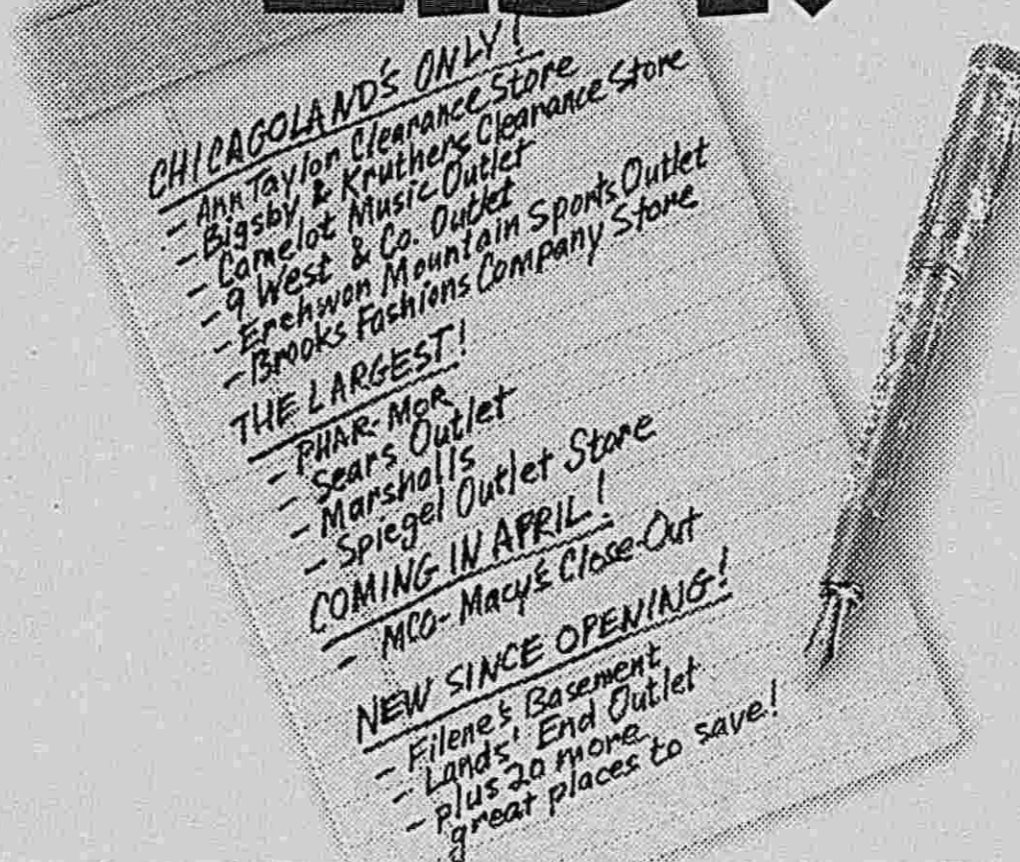 CHICAGOLAND'S ONLY!
- Ann Taylor Clearance Store
- Bigsby & Kruthers Clearance Store
- Camelot Music Outlet
- 9 West & Co. Outlet
- Erehwon Mountain Sports Outlet
- Brooks Fashions Company Store
THE LARGEST!
- PHAR-MOR
- Sears Outlet
- Marshalls
- Spiegel Outlet Store
COMING IN APRIL!
- MCO- Macy's Close-Out
NEW SINCE OPENING!
- Filene's Basement
- Lands' End Outlet
- plus 20 more
great places to save!